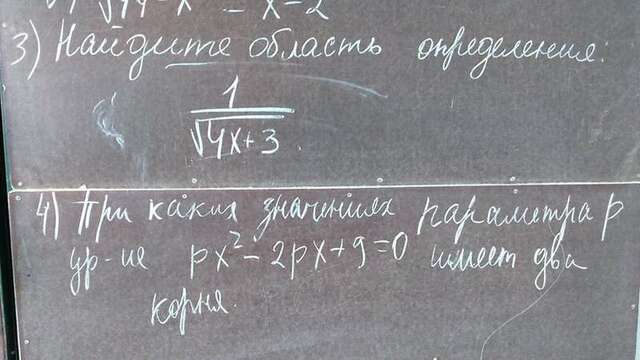 √44-x = x-2
3) Найдите область определения:
1
√4x+3.
4) При каких значениях параметра р
ур-ие px²-2px+9=0 имеет два
корня.